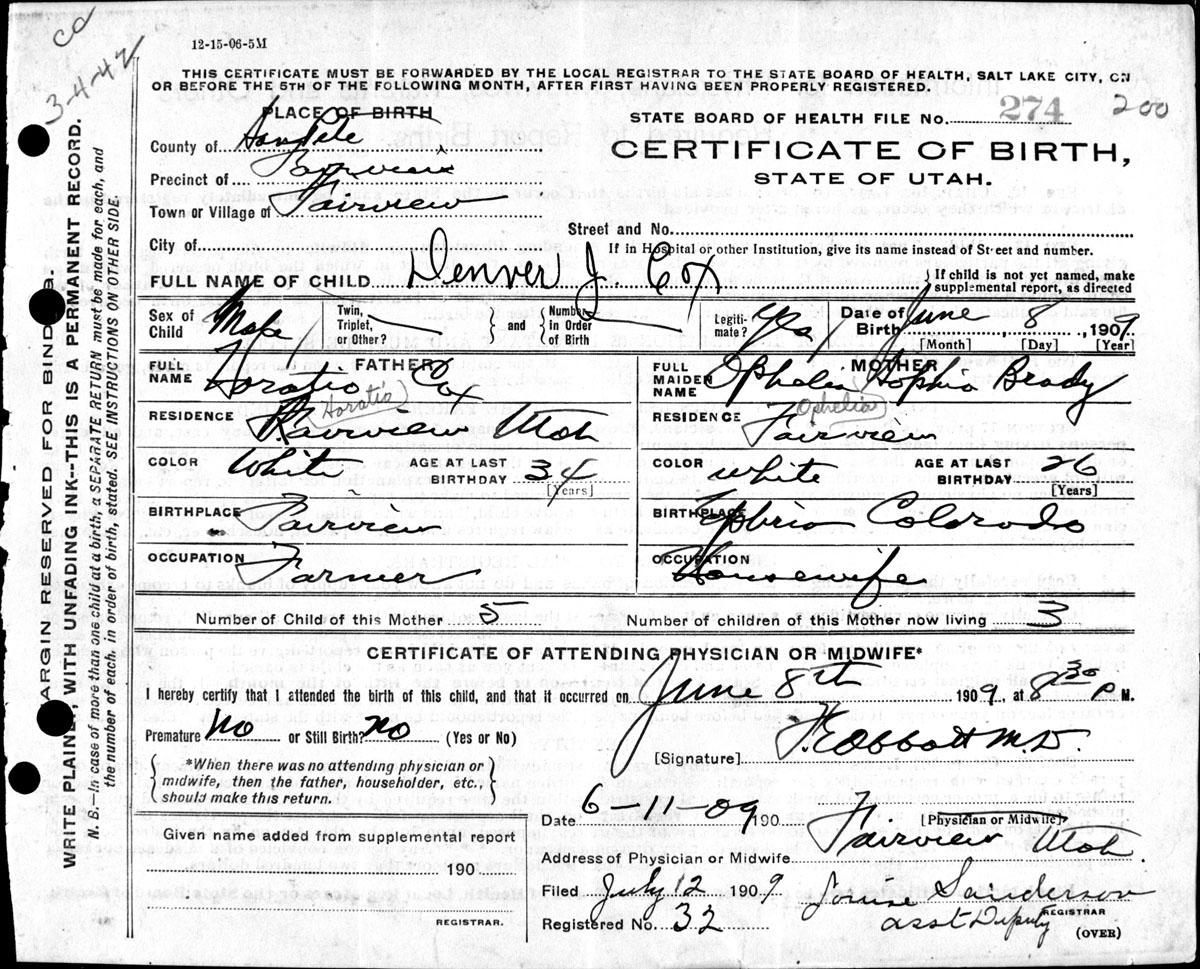 cc
3-4-42
12-15-06-5M
THIS CERTIFICATE MUST BE FORWARDED BY THE LOCAL REGISTRAR TO THE STATE BOARD OF HEALTH, SALT LAKE CITY, ON
OR BEFORE THE 5TH OF THE FOLLOWING MONTH, AFTER FIRST HAVING BEEN PROPERLY REGISTERED.
PLACE OF BIRTH
STATE BOARD OF HEALTH FILE No. 274 200
County of SanPete
CERTIFICATE OF BIRTH,
STATE OF UTAH.
Precinct of Fairview
Town or Village of Fairview
Street and No.
City of
If in Hospital or other Institution, give its name instead of Street and number.
FULL NAME OF CHILD Denver J. Cox
If child is not yet named, make
supplemental report, as directed
Sex of Child Male
Twin, Triplet, or Other?
and
Number in Order of Birth
Legiti-mate? Yes
Date of Birth June 8 1909
[Month] [Day] [Year]
FATHER
FULL NAME Horatio Cox
MOTHER
FULL MAIDEN NAME Ophelia Sophia Brady
Horatio
Ophelia
RESIDENCE Fairview Utah
RESIDENCE Fairview
COLOR White AGE AT LAST BIRTHDAY 34 [Years]
COLOR white AGE AT LAST BIRTHDAY 26 [Years]
BIRTHPLACE Fairview
BIRTHPLACE Colorado
OCCUPATION Farmer
OCCUPATION Housewife
Number of Child of this Mother 5
Number of children of this Mother now living 3
CERTIFICATE OF ATTENDING PHYSICIAN OR MIDWIFE*
I hereby certify that I attended the birth of this child, and that it occurred on June 8th 1909, at 8 30 P M.
Premature No or Still Birth? No (Yes or No)
[Signature] Abbott M.D.
*When there was no attending physician or
midwife, then the father, householder, etc.,
should make this return.
[Physician or Midwife]
Date 6-11-09 190
Give name added from supplemental report
190
REGISTRAR.
Address of Physician or Midwife Fairview Utah.
Filed July 12 1909 Louise Sanderson
Registered No. 32 asst Deputy REGISTRAR
(OVER)
MARGIN RESERVED FOR BINDING.
WRITE PLAINLY, WITH UNFADING INK--THIS IS A PERMANENT RECORD.
N. B.—In case of more than one child at a birth a SEPARATE RETURN must be made for each, and
the number of each, in order of birth, stated. SEE INSTRUCTIONS ON OTHER SIDE.